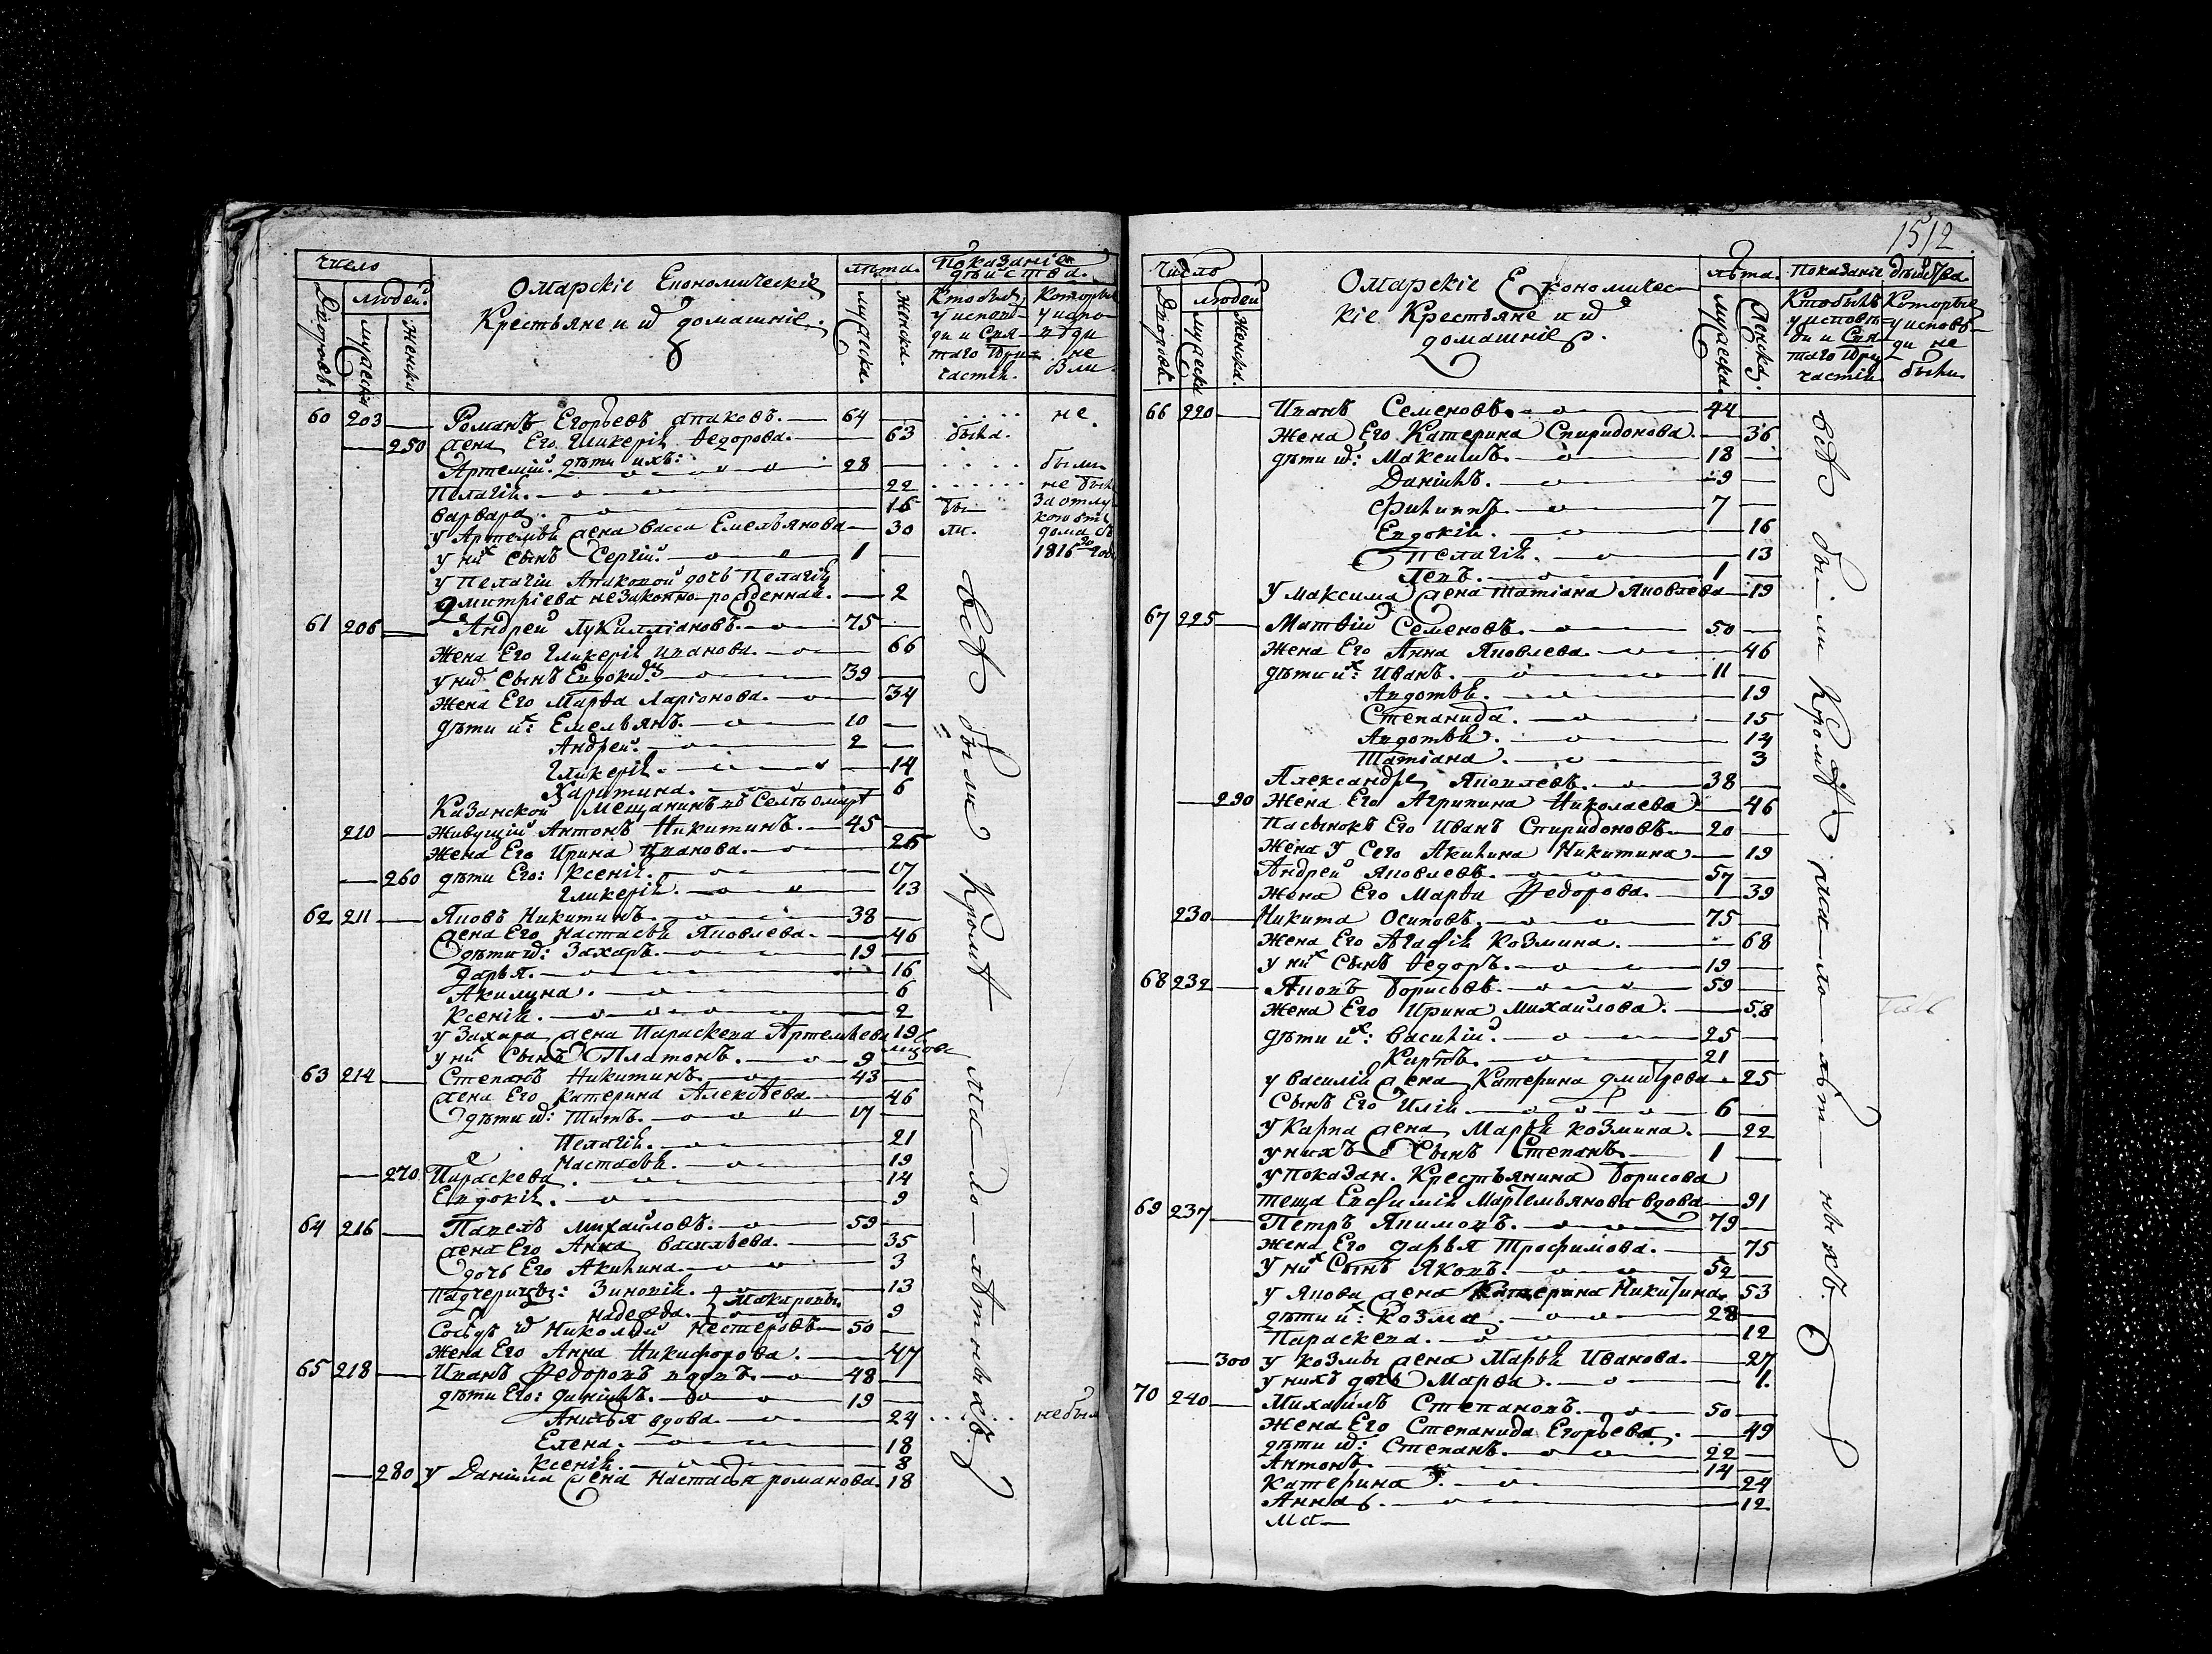 Число
людей
Дворовъ.
мужеска
женска
Омарскіе Економическіе
Крестьяне и их домашніе.
лѣта.
мужеска.
женска.
Показаніе
дѣйства.
Кто былъ
у исповѣ-
ди и Свя-
таго При-
частія.
Которые
не
60 203 — Романъ Егорьевъ — 64 — не
— 250 жена Его Гликерія Федорова. — 63 была.
дѣти ихъ:
Артемій. — 28 — были
Пелагія. — 22 не были
Варвара. — 16 бы— За отлу
у Артемья жена Васса Емельянова — 30 ли. дома
у них сынъ Сергій. — 1 — 1816 го года
у Пелагіи дочь Пелагія
Дмитріева незаконно-рожденная. — 2
61 206 — Андрей Лукилліановъ. — 75 —
Жена Его Гликерія Иванова. — 66
у них сынъ Евдокимъ — 39 —
Жена Его Марѳа Ларіонова. — 34
дѣти их: Емельянъ. — 10 —
Андрей. — 2 —
Гликерія. — 14
Харитина. — 6
Казанской Мещанинъ въ Селѣ Омарѣ
210 — живущій Антонъ Никитинъ. — 45 —
жена Его Ирина Иванова. — 26
— 260 дѣти Его: Ксенія. — 17
Гликерія. — 13
62 211 — Яковъ Никитинъ. — 38 —
жена Его Настасья Яковлева. — 46
дѣти их: Захаръ. — 19 —
Дарья. — 16
Акилина. — 6
Ксенія. — 2
у Захара жена Параскева Артемьева 19
у них Сынъ Платонъ. — 9
63 214 — Степанъ Никитинъ. — 43 —
жена Его Катерина Алексѣева. — 46
дѣти их: Титъ. — 17 —
Пелагія. — 21
Настасья. — 19
— 270 Параскева. — 14
Евдокія. — 9
64 216 — Павелъ Михайловъ. — 59 —
жена Его Анна Васильева. — 35
дочь Его Акилина. — 3
падчерицы: Зиновія. — 13
Надежда. } Макаровы. 9
Сосѣдъ их Николай Нестеровъ — 50 —
Жена Его Анна Никифорова. — 47
65 218 — Иванъ Федоровъ вдовъ. — 48 —
дѣти Его: Даніилъ. — 19 —
Анисья вдова. — 24 . . . . . . не была
Елена. — 18
Ксенія. — 8
— 280 у Даніила жена Настасья Романова. 18
всѣ были Кромѣ мало-лѣтныхъ.
15/2
Число
людей
Дворовъ.
мужеска
женска.
Омарскіе Економичес-
кіе Крестьяне и их
домашніе.
лѣта.
мужеска.
женска.
Показаніе дѣйства.
Кто былъ
у исповѣ-
ди и Свя-
таго При-
частія.
Которые
у исповѣ-
ди не
были.
66 220 — Иванъ Семеновъ. — 44 —
Жена Его Катерина Спиридонова. — 36
дѣти их: Максимъ. — 18 —
Даніилъ. — 9 —
Филиппъ — 7 —
Евдокія. — 16
Пелагія. — 13
1 —
У Максима жена Татіана Яковлева — 19
67 225 — Матвій Семеновъ. — 50 —
Жена Его Анна Яковлева. — 46
дѣти их: Иванъ. — 11 —
Авдотья. — 19
Степанида. — 15
Авдотья. — 14
Татіана. — 3
Александръ Яковлевъ. — 38 —
— 290 Жена Его Агрипина Николаева — 46
Пасынокъ Его Иванъ Спиридоновъ. — 20 —
Жена у Сего Акилина Никитина — 19
Андрей Яковлевъ. — 57 —
Жена Его Марѳа Федорова. — 39
230 — Никита Осиповъ. — 75 —
Жена Его Агафія Козмина. — 68
у них Сынъ Федоръ. — 19 —
68 232 — Яковъ Борисовъ. — 59 —
Жена Его Ирина Михайлова. — 58
дѣти их: Василій. — 25 —
Карпъ. — 21 —
у Василія жена Катерина Дмитрева — 25
Сынъ Его Илія — 6 —
У Карпа жена Марья Козмина. — 22
у нихъ Сынъ Степанъ — 1 —
у показан. Крестьянина Борисова
теща Евфимія Мартемьянова вдова — 91
69 237 — Петръ Якимовъ. — 79 —
Жена Его Дарья Трофимова. — 75
У них Сынъ Яковъ. — 52 —
у Якова жена Катерина Никитина. 53
дѣти их: Козма. — 28 —
Параскева. — 12
— 300 у Козмы жена Марья Иванова. — 27
у нихъ дочь Марѳа. — 1.
70 240 — Михайлъ Степановъ. — 50 —
Жена Его Степанида Егорьева. — 49
дѣти их: Степанъ. — 22 —
Антонъ. — 14 —
Катерина. — 24
Анна. — 12
Ма—
всѣ бы-ли Кромѣ ма-ло-лѣт-ныхъ.